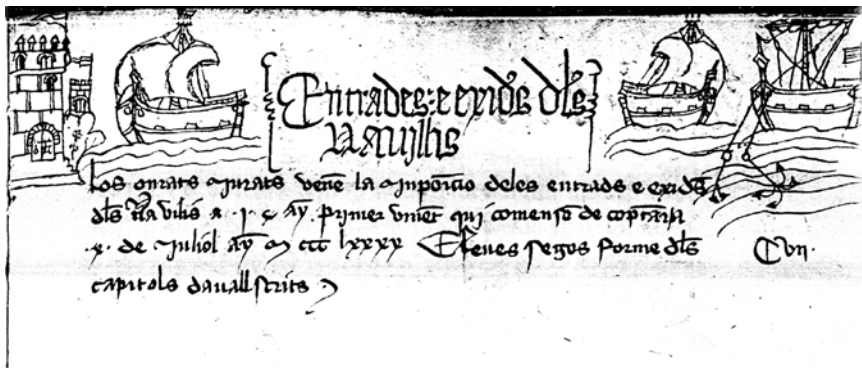 Entrades: e exids dls
Nauilis
los onrats jurats vene la inposicio deles entrads e exids
dls nauilis a .j. ay primer vinet qui comenso de comptar a
.x. de juhiol ay m ccc lxxxx E feues segos forme dls
capitols dauall scrits
Cvii.